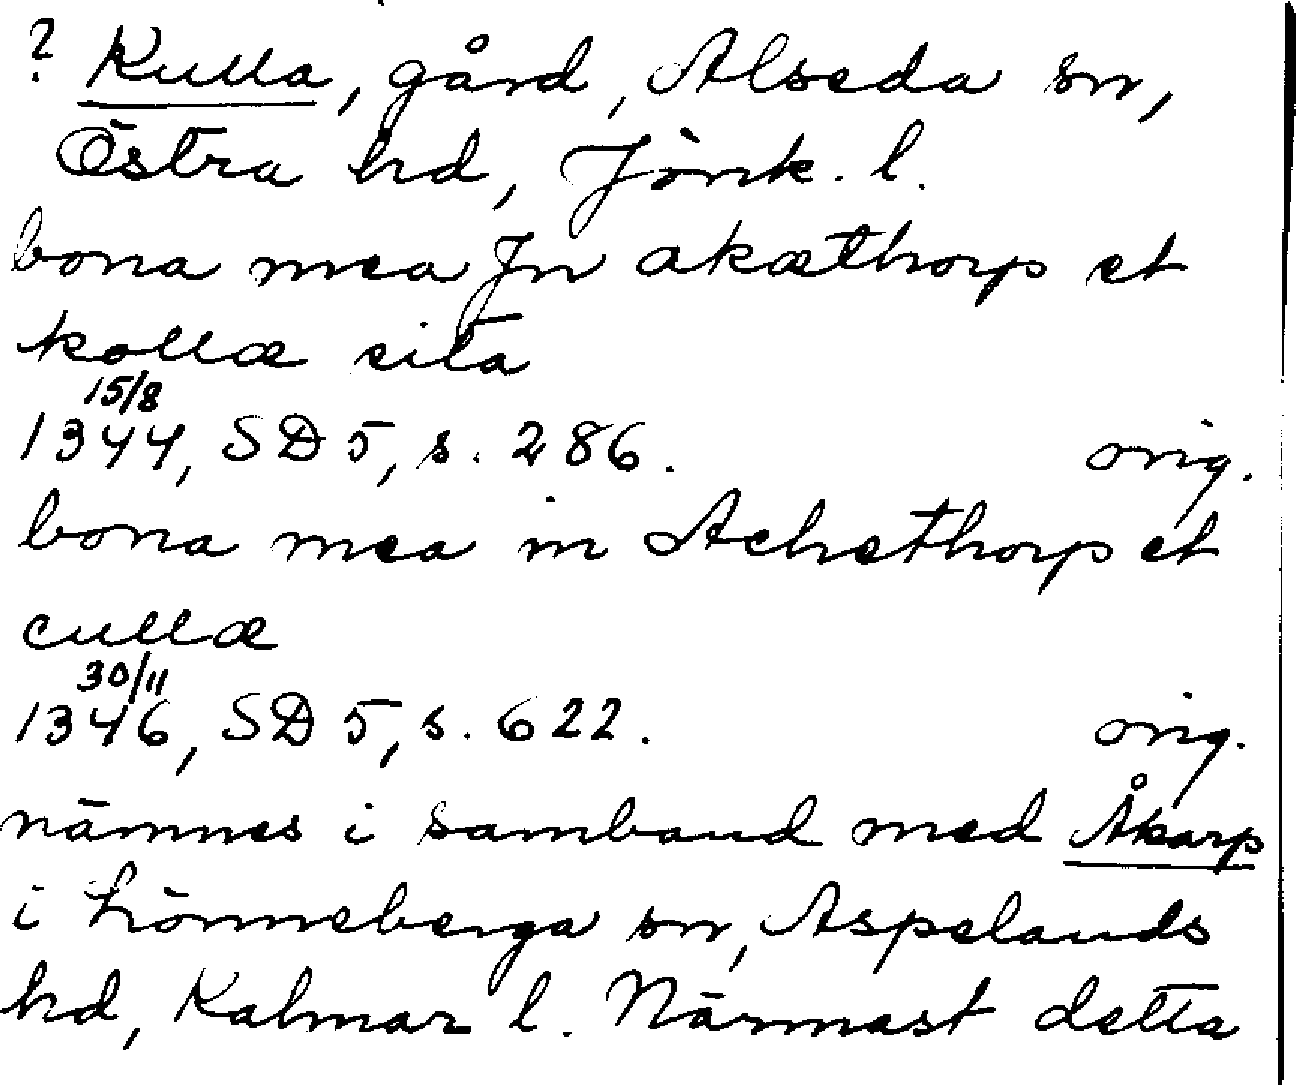 ? Kulla, gård, Alseda sn,
Östra hd, Jönk. l.
bona mea Jn akæthorp et
kollæ sita
15/8
1344, SD 5, s. 286. orig.
bona mea in Achethorp et
cullæ
30/11
1346, SD 5, s. 622. orig.
nämnes i samband med Åkarp
i Lönneberga sn, Aspelands
hd, Kalmar l. Närmast detta